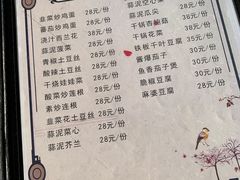 韭菜炒鸡蛋 28元/份
番茄炒鸡蛋 28元/份
浇汁西兰花 38元/份
蒜泥菠菜 28元/份
青椒土豆丝 28元/份
酸辣土豆丝 28元/份
干烧娃娃菜 28元/份
酸菜炒莲根 28元/份
素炒莲根 28元/份
韭菜花土豆丝 28元/份
蒜泥菜心 28元/份
蒜泥芥兰 28元/份
蒜泥空心菜
蒜泥瓜尖 28元/份
干锅西 28元/份
干锅花菜 28元/份
铁板千叶豆腐 28元/份
酱爆茄子 28元/份
鱼香茄子煲 28元/份
脆椒豆腐 28元/份
麻婆豆腐 28元/份